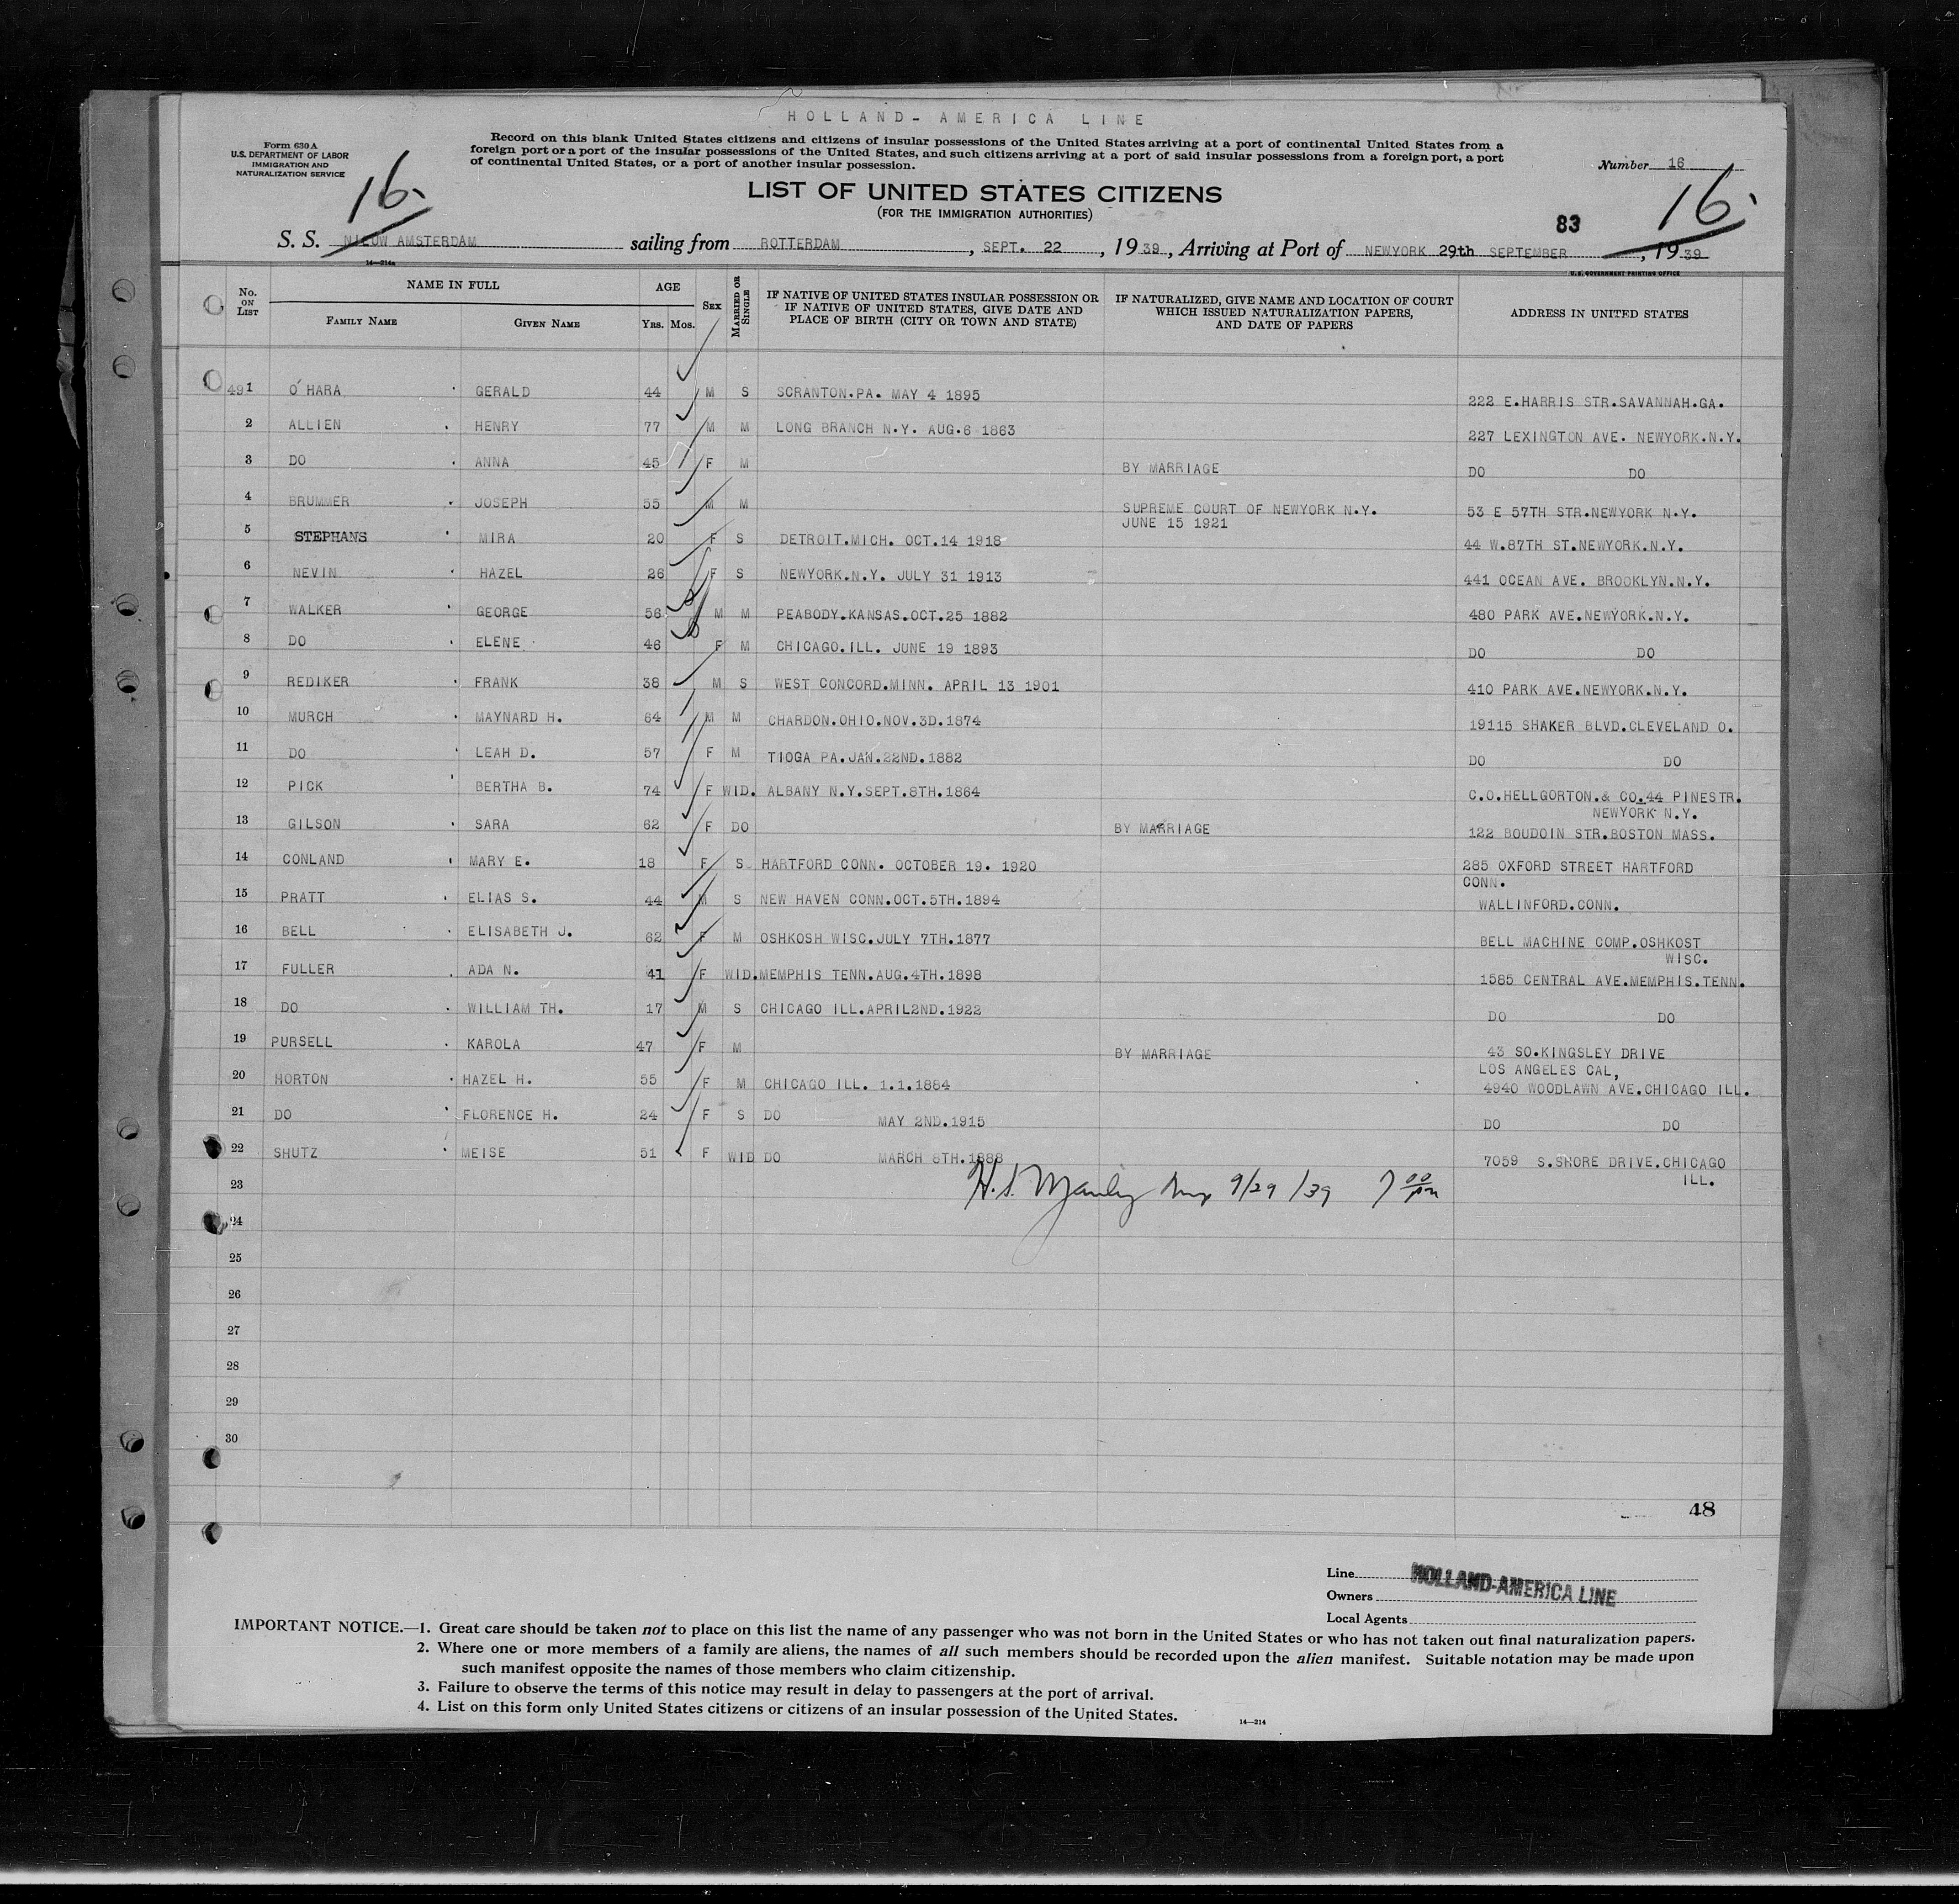 HOLLAND- AMERICA LINE
Form 630 A
U.S. DEPARTMENT OF LABOR
IMMIGRATION AND
NATURALIZATION SERVICE
Record on this blank United States citizens and citizens of insular possessions of the United States arriving at a port of continental United States from a
foreign port or a port of the insular possessions of the United States, and such citizens arriving at a port of said insular possessions from a foreign port, a port
of continental United States, or a port of another insular possession.
Number 16
16.
16.
LIST OF UNITED STATES CITIZENS
(FOR THE IMMIGRATION AUTHORITIES)
83
S. S. NIEUW AMSTERDAM sailing from ROTTERDAM, SEPT. 22, 1939, Arriving at Port of NEWYORK 29th SEPTEMBER, 1939
14—214a
U.S. GOVERNMENT PRINTING OFFICE
No. ON LIST NAME IN FULL FAMILY NAME GIVEN NAME AGE YRS. MOS. SEX MARRIED OR SINGLE IF NATIVE OF UNITED STATES INSULAR POSSESSION OR IF NATIVE OF UNITED STATES, GIVE DATE AND PLACE OF BIRTH (CITY OR TOWN AND STATE) IF NATURALIZED, GIVE NAME AND LOCATION OF COURT WHICH ISSUED NATURALIZATION PAPERS, AND DATE OF PAPERS ADDRESS IN UNITED STATES
491 O'HARA GERALD 44 M S SCRANTON.PA. MAY 4 1895 222 E.HARRIS STR.SAVANNAH.GA.
2 ALLIEN HENRY 77 M M LONG BRANCH N.Y. AUG.6 1863 227 LEXINGTON AVE. NEWYORK.N.Y.
3 DO ANNA 45 F M BY MARRIAGE DO DO
4 BRUMMER JOSEPH 55 M M SUPREME COURT OF NEWYORK N.Y. 53 E 57TH STR.NEWYORK N.Y.
JUNE 15 1921
5 STEPHANS MIRA 20 F S DETROIT.MICH. OCT.14 1918 44 W.87TH ST.NEWYORK.N.Y.
6 NEVIN HAZEL 26 F S NEWYORK.N.Y. JULY 31 1913 441 OCEAN AVE. BROOKLYN.N.Y.
7 WALKER GEORGE 56 M M PEABODY.KANSAS.OCT.25 1882 480 PARK AVE.NEWYORK.N.Y.
8 DO ELENE 46 F M CHICAGO.ILL. JUNE 19 1893 DO DO
9 REDIKER FRANK 38 M S WEST CONCORD.MINN. APRIL 13 1901 410 PARK AVE.NEWYORK.N.Y.
10 MURCH MAYNARD H. 64 M M CHARDON.OHIO.NOV.3D.1874 19115 SHAKER BLVD.CLEVELAND O.
11 DO LEAH D. 57 F M TIOGA PA.JAN.22ND.1882 DO DO
12 PICK BERTHA B. 74 F WID. ALBANY N.Y.SEPT.8TH.1864 C.O.HELLGORTON.& CO.44 PINESTR.
NEWYORK N.Y.
13 GILSON SARA 62 F DO BY MARRIAGE 122 BOUDOIN STR.BOSTON MASS.
14 CONLAND MARY E. 18 F S HARTFORD CONN. OCTOBER 19. 1920 285 OXFORD STREET HARTFORD
CONN.
15 PRATT ELIAS S. 44 M S NEW HAVEN CONN.OCT.5TH.1894 WALLINFORD.CONN.
16 BELL ELISABETH J. 62 F M OSHKOSH WISC.JULY 7TH.1877 BELL MACHINE COMP.OSHKOST
WISC.
17 FULLER ADA N. 41 F WID. MEMPHIS TENN.AUG.4TH.1898 1585 CENTRAL AVE.MEMPHIS.TENN.
18 DO WILLIAM TH. 17 M S CHICAGO ILL.APRIL2ND.1922 DO DO
19 PURSELL KAROLA 47 F M BY MARRIAGE 43 SO.KINGSLEY DRIVE
LOS ANGELES CAL,
20 HORTON HAZEL H. 55 F M CHICAGO ILL. 1.1.1884 4940 WOODLAWN AVE.CHICAGO ILL.
21 DO FLORENCE H. 24 F S DO MAY 2ND.1915 DO DO
22 SHUTZ MEISE 51 F WID DO MARCH 8TH.1888 7059 S.SHORE DRIVE.CHICAGO
ILL.
23 H.S. 9/29/39 7 00 pm
24
25
26
27
28
29
30
48
Line HOLLAND-AMERICA LINE
Owners
Local Agents
IMPORTANT NOTICE.—1. Great care should be taken not to place on this list the name of any passenger who was not born in the United States or who has not taken out final naturalization papers.
2. Where one or more members of a family are aliens, the names of all such members should be recorded upon the alien manifest. Suitable notation may be made upon
such manifest opposite the names of those members who claim citizenship.
3. Failure to observe the terms of this notice may result in delay to passengers at the port of arrival.
4. List on this form only United States citizens or citizens of an insular possession of the United States.
14—214